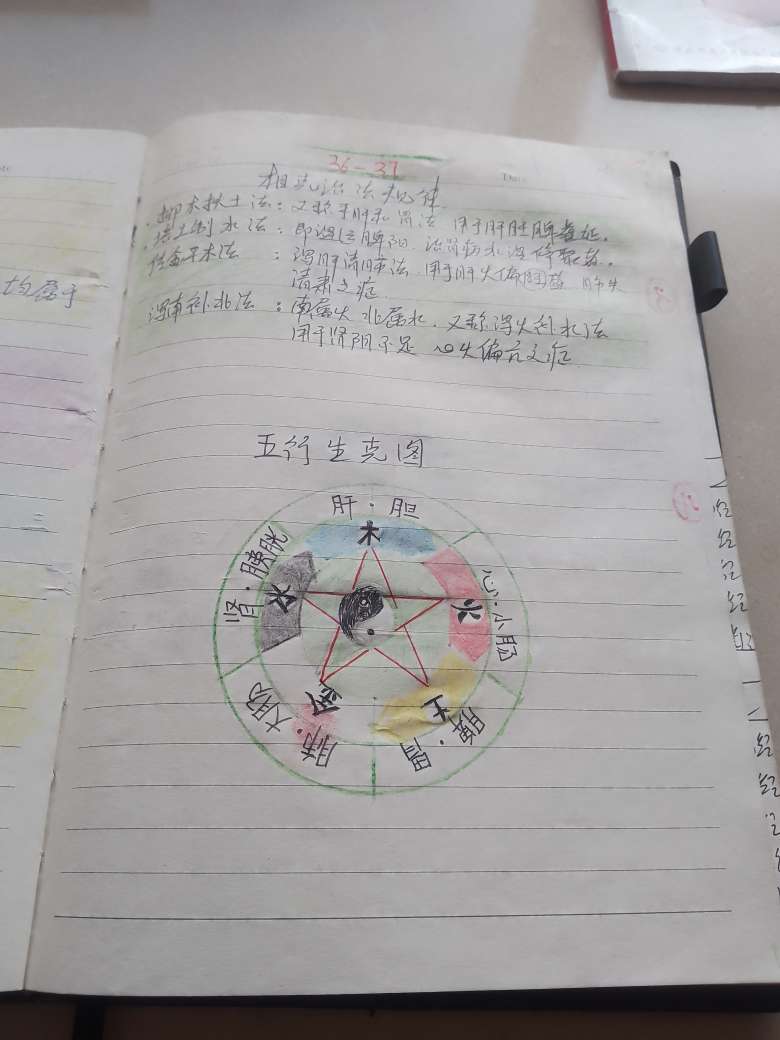 均属于
36-37
相克治法规律
抑木扶土法：又称平肝和胃法 用于肝旺脾虚证.
培土制水法：即温运脾阳.治
佐金平木法：泻肝清肺法.用于肝火偏
清肃之症
泻南补北法：南属火 北属水.又称泻火补水法
用于肾阴不足 心火偏亢之症
五行生克图
肝·胆
木
肾·膀胱
水
心·小肠
火
肺·大肠
金
脾·胃
土